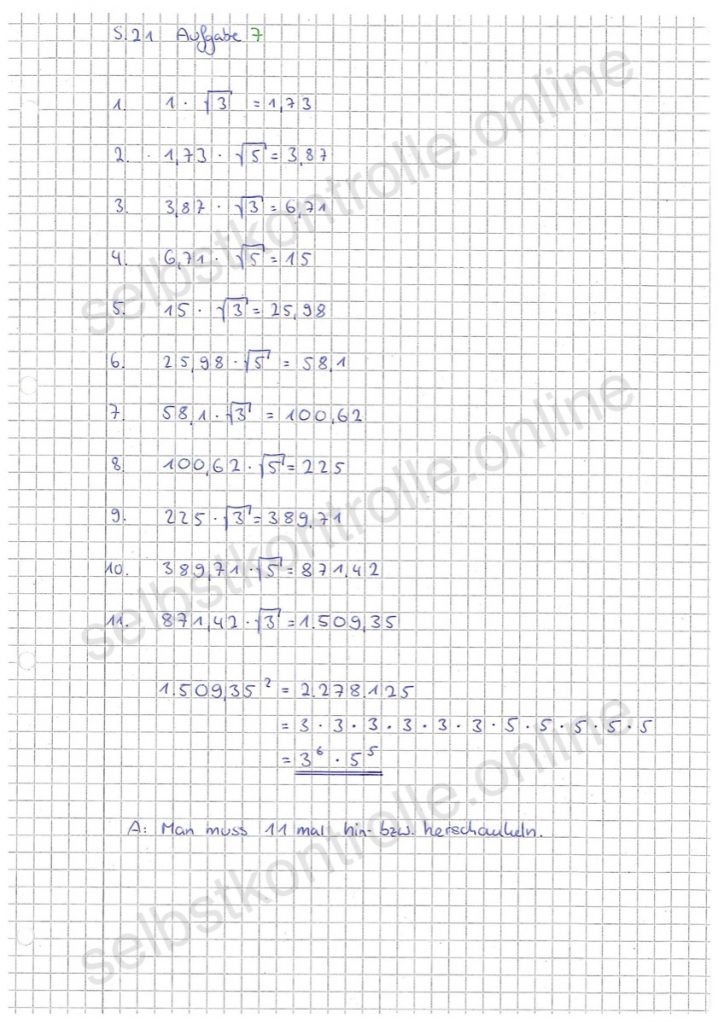 S.21 Aufgabe 7
1. 1 · √3 = 1,73
2. 1,73 · √5 = 3,87
3. 3,87 · √3 = 6,71
4. 6,71 · √5 = 15
5. 15 · √3 = 25,98
6. 25,98 · √5 = 58,1
7. 58,1 · √3 = 100,62
8. 100,62 · √5 = 225
9. 225 · √3 = 389,71
10. 389,71 · √5 = 871,42
11. 871,42 · √3 = 1.509,35
1.509,35² = 2.278.125
= 3 · 3 · 3 · 3 · 3 · 3 · 5 · 5 · 5 · 5 · 5
= 3⁶ · 5⁵
A: Man muss 11 mal hin- bzw. herschaukeln.
selbstkontrolle.online
selbstkontrolle.online
selbstkontrolle.online